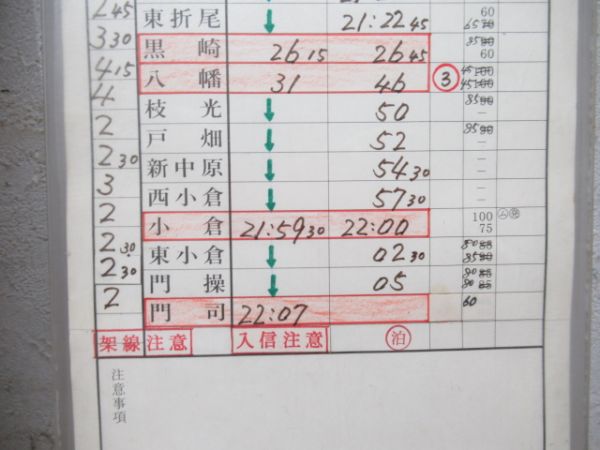 2 45 東折尾 ↓ 21:22 45 60
3 30 黒崎 26 15 26 45 60
4 15 八幡 31 46 ③
4 枝光 ↓ 50 –
2 戸畑 ↓ 52 –
2 30 新中原 ↓ 54 30 –
3 西小倉 ↓ 57 30 –
2 小倉 21:59 30 22:00 100 75
2 30 東小倉 ↓ 02 30
2 30 門操 ↓ 05
2 門司 22:07 60
架線注意 入信注意 泊
注意事項